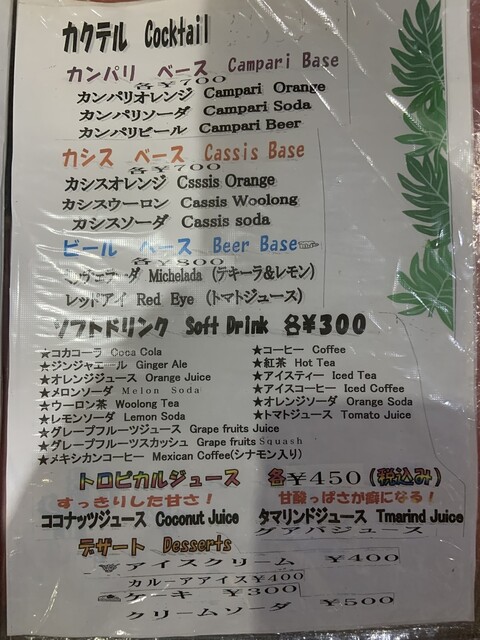 カクテル Cocktail
カンパリ ベース Campari Base
各￥700
カンパリオレンジ Campari Orange
カンパリソーダ Campari Soda
カンパリビール Campari Beer
カシス ベース Cassis Base
各￥700
カシスオレンジ Csssis Orange
カシスウーロン Cassis Woolong
カシスソーダ Cassis soda
ビール ベース Beer Base
各￥800
Michelada (テキーラ&レモン)
レッドアイ Red Eye (トマトジュース)
ソフトドリンク Soft Drink 各￥300
★コカコーラ Coca Cola ★コーヒー Coffee
★ジンジャエール Ginger Ale ★紅茶 Hot Tea
★オレンジジュース Orange Juice ★アイスティー Iced Tea
★メロンソーダ Melon Soda ★アイスコーヒー Iced Coffee
★ウーロン茶 Woolong Tea ★オレンジソーダ Orange Soda
★レモンソーダ Lemon Soda ★トマトジュース Tomato Juice
★グレープフルーツジュース Grape fruits Juice
★グレープフルーツスカッシュ Grape fruits Squash
★メキシカンコーヒー Mexican Coffee(シナモン入り)
トロピカルジュース 各￥450(税込み)
すっきりした甘さ! 甘酸っぱさが癖になる!
ココナッツジュース Coconut Juice タマリンドジュース Tmarind Juice
グアバジュース
デザート Desserts
アイスクリーム ￥400
カルーアアイス￥400
ケーキ ￥300
クリームソーダ ￥500